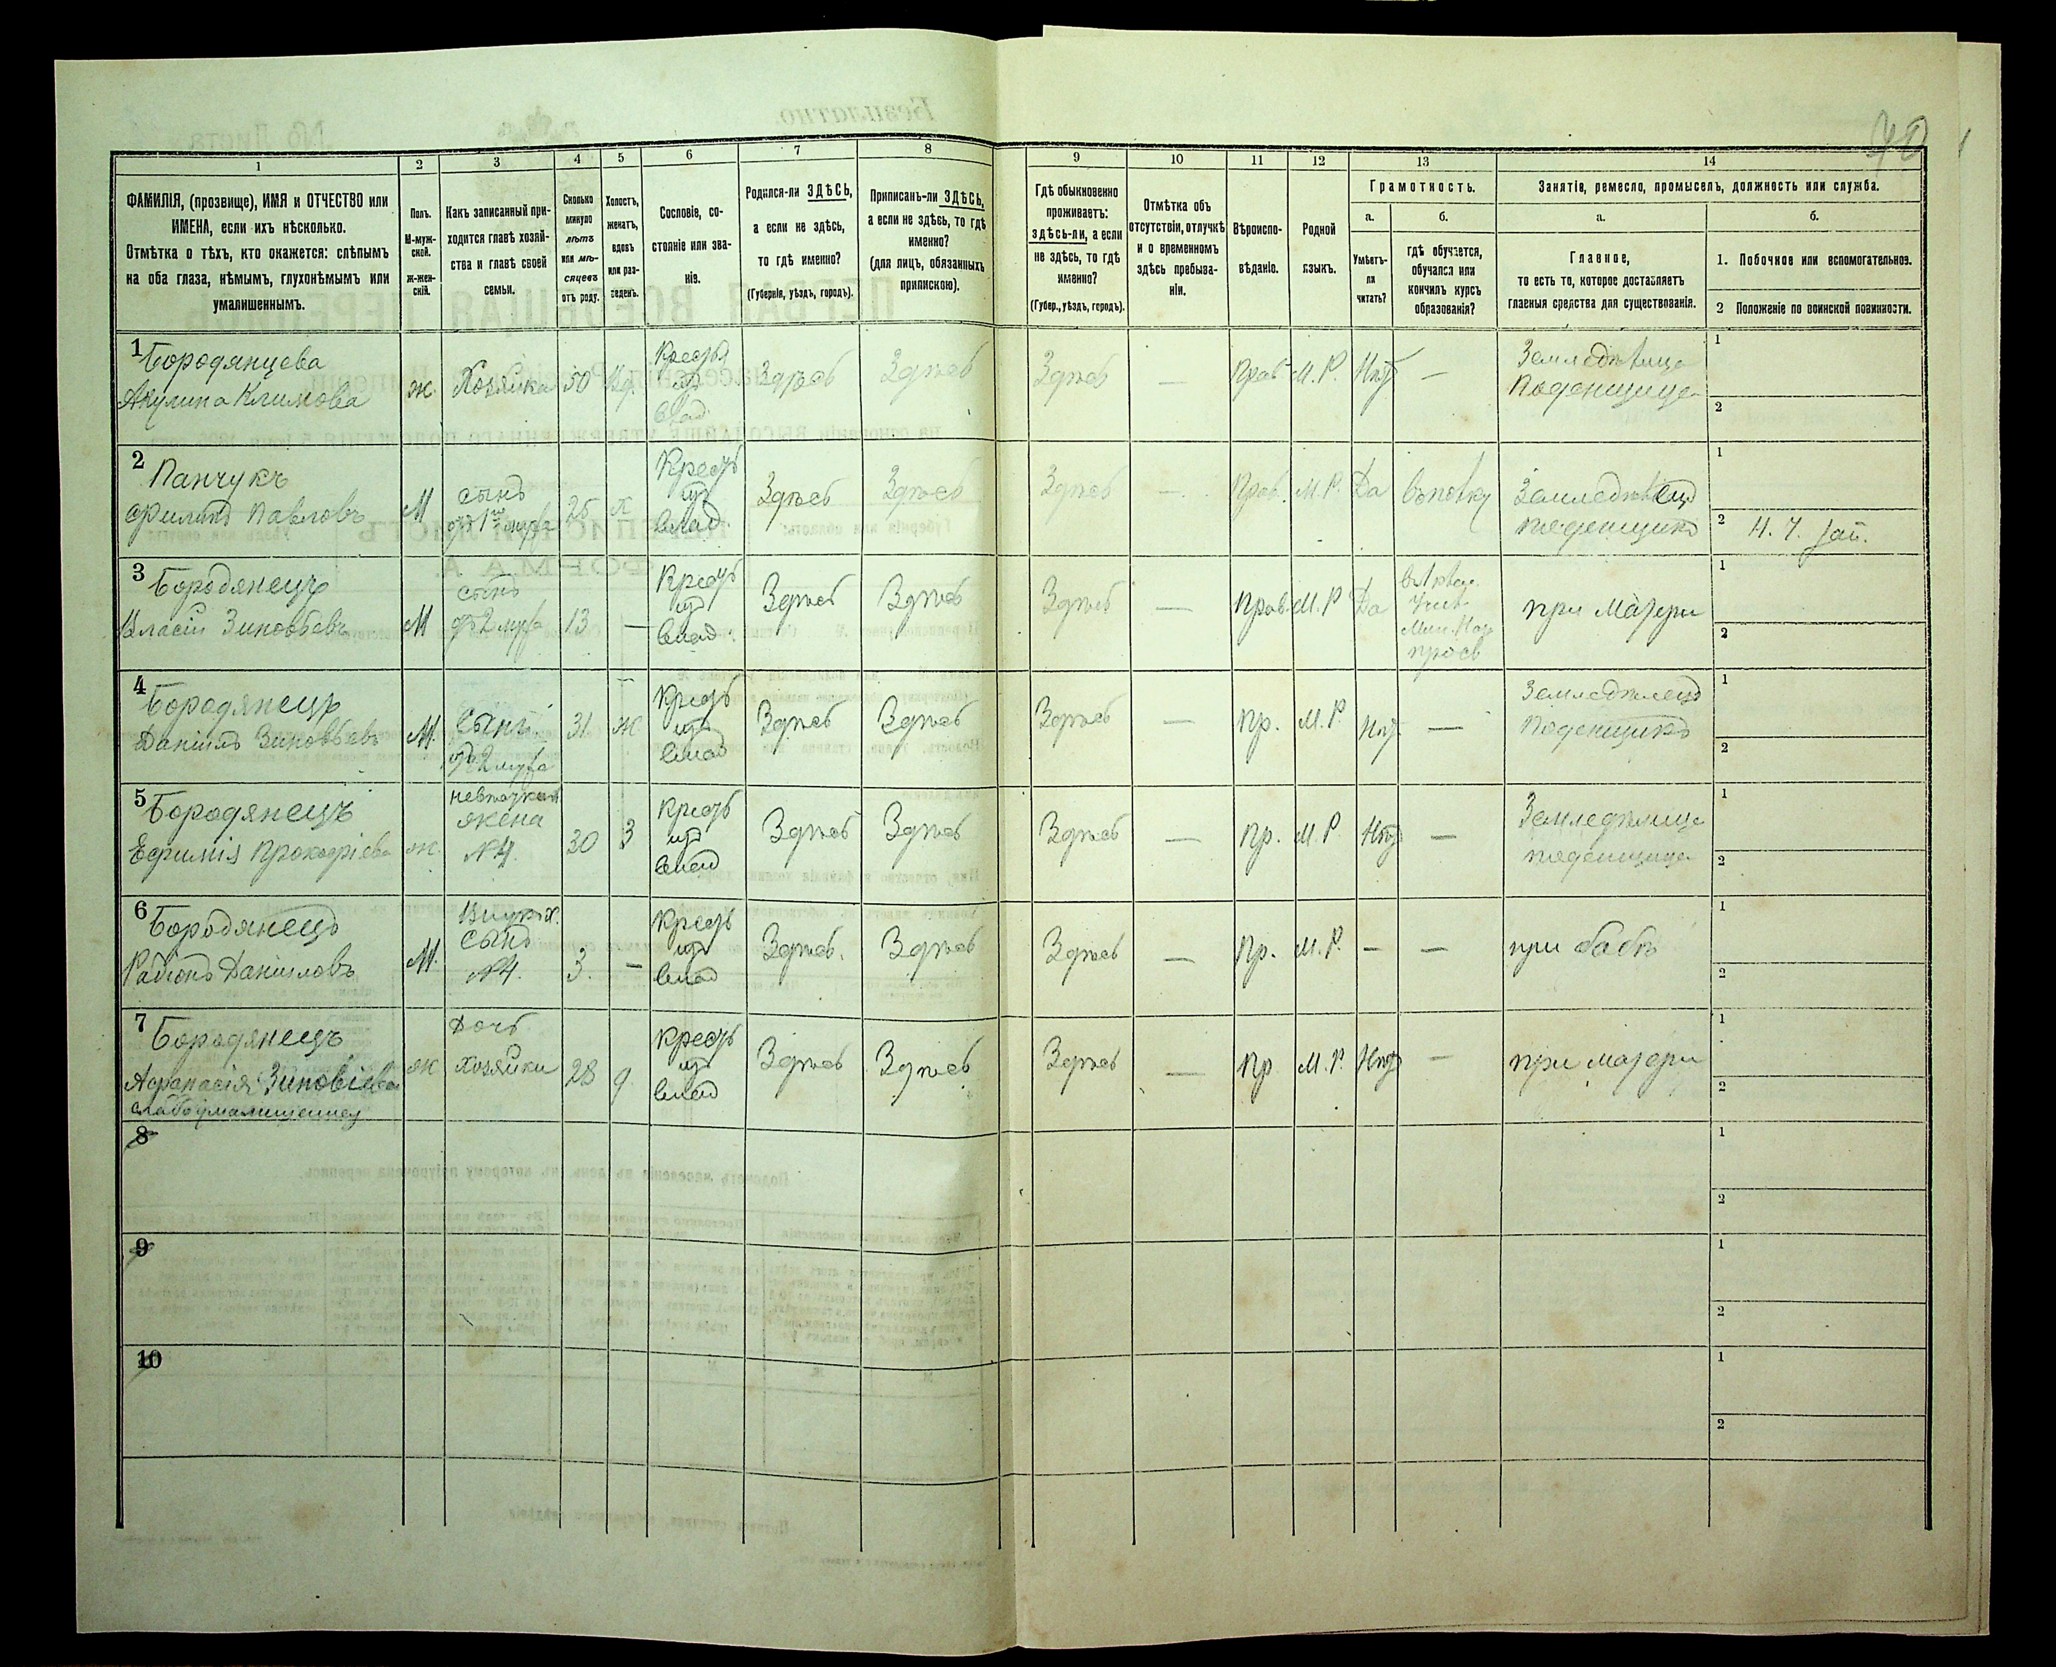 1
2
3
4
5
6
7
8
9
10
11
12
13
14
ФАМИЛІЯ, (прозвище), ИМЯ и ОТЧЕСТВО или
ИМЕНА, если ихъ нѣсколько.
Отмѣтка о тѣхъ, кто окажется: слѣпымъ
на оба глаза, нѣмымъ, глухонѣмымъ или
умалишеннымъ.
Полъ.
М-муж-
ской.
Ж-жен-
скій.
Какъ записанный при-
ходится главѣ хозяй-
ства и главѣ своей
семьи.
Сколько
минуло
лѣтъ
или мѣ-
сяцевъ
отъ роду.
Холостъ,
женатъ,
вдовъ
или раз-
веденъ.
Сословіе, со-
стояніе или зва-
ніе.
Родился-ли ЗДѢСЬ,
а если не здѣсь,
то гдѣ именно?
(Губернія, уѣздъ, городъ).
Приписанъ-ли ЗДѢСЬ,
а если не здѣсь, то гдѣ
именно?
(для лицъ, обязанныхъ
припискою).
Гдѣ обыкновенно
проживаетъ:
здѣсь-ли, а если
не здѣсь, то гдѣ
именно?
(Губер., уѣздъ, городъ).
Отмѣтка объ
отсутствіи, отлучкѣ
и о временномъ
здѣсь пребыва-
ніи.
Вѣроиспо-
вѣданіе.
Родной
языкъ.
Грамотность.
а.
Умѣетъ-
ли
читать?
б.
гдѣ обучается,
обучался или
кончилъ курсъ
образованія?
Занятіе, ремесло, промыселъ, должность или служба.
а.
Главное,
то есть то, которое доставляетъ
главныя средства для существованія.
б.
1. Побочное или вспомогательное.
2 Положеніе по воинской повинности.
1 Бородянцева
Акулина Климова
ж. Хозяйка 50 Вд. Крестья
из
влад. Здѣсь Здѣсь Здѣсь — Прав М. Р. Нѣт — Земледѣлица
Поденщица
1
2
2 Панчукъ
Филипъ Павловъ
М сынъ
от 1го мужа 25 х Крестъ
из
влад. Здѣсь Здѣсь Здѣсь — Прав. М. Р. Да Земледѣлецъ
поденщикъ
1
2 Н. Ч. Зап.
3 Бородянецъ
Власій Зиновьевъ
М сынъ
от 2 мужа 13 — Крестъ
из
влад. Здѣсь Здѣсь Здѣсь — Прав. М. Р Да
Мин. Нар
просв
при матери
1
2
4 Бородянецъ
Даніилъ Зиновьевъ
М. Сынъ
от 2 мужа 31 ж Крестъ
из
влад Здѣсь Здѣсь Здѣсь — Пр. М. Р. Нѣт — Земледѣлецъ
Поденщикъ
1
2
5 Бородянецъ
Ефимія Прокофіева
ж. невѣстка
жена
№4. 30 З Крестъ
из
влад Здѣсь Здѣсь Здѣсь — Пр. М. Р Нѣт — Земледѣлица
поденщица
1
2
6 Бородянецъ
Радіонъ Даніиловъ
М. Внукъ х.
сынъ
№4. 3. — Крестъ
из
влад Здѣсь. Здѣсь Здѣсь — Пр. М. Р. — — при бабѣ
1
2
7 Бородянецъ
Афанасія Зиновіева
слабоумалишенная
ж Дочь
хозяйки 28 д. Крестъ
из
влад Здѣсь Здѣсь Здѣсь — Пр М. Р. Нѣт — при матери
1
2
8
1
2
9
1
2
10
1
2